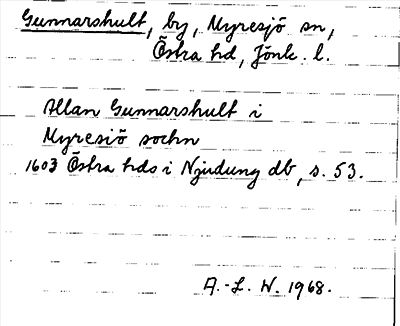 Gunnarshult, by, Myresjö sn,
Östra hd, Jönk. l.
Allan Gunnarshult i
Myresiö sochn
1603 Östra hds i Njudung db, s. 53.
A.-L. W. 1968.